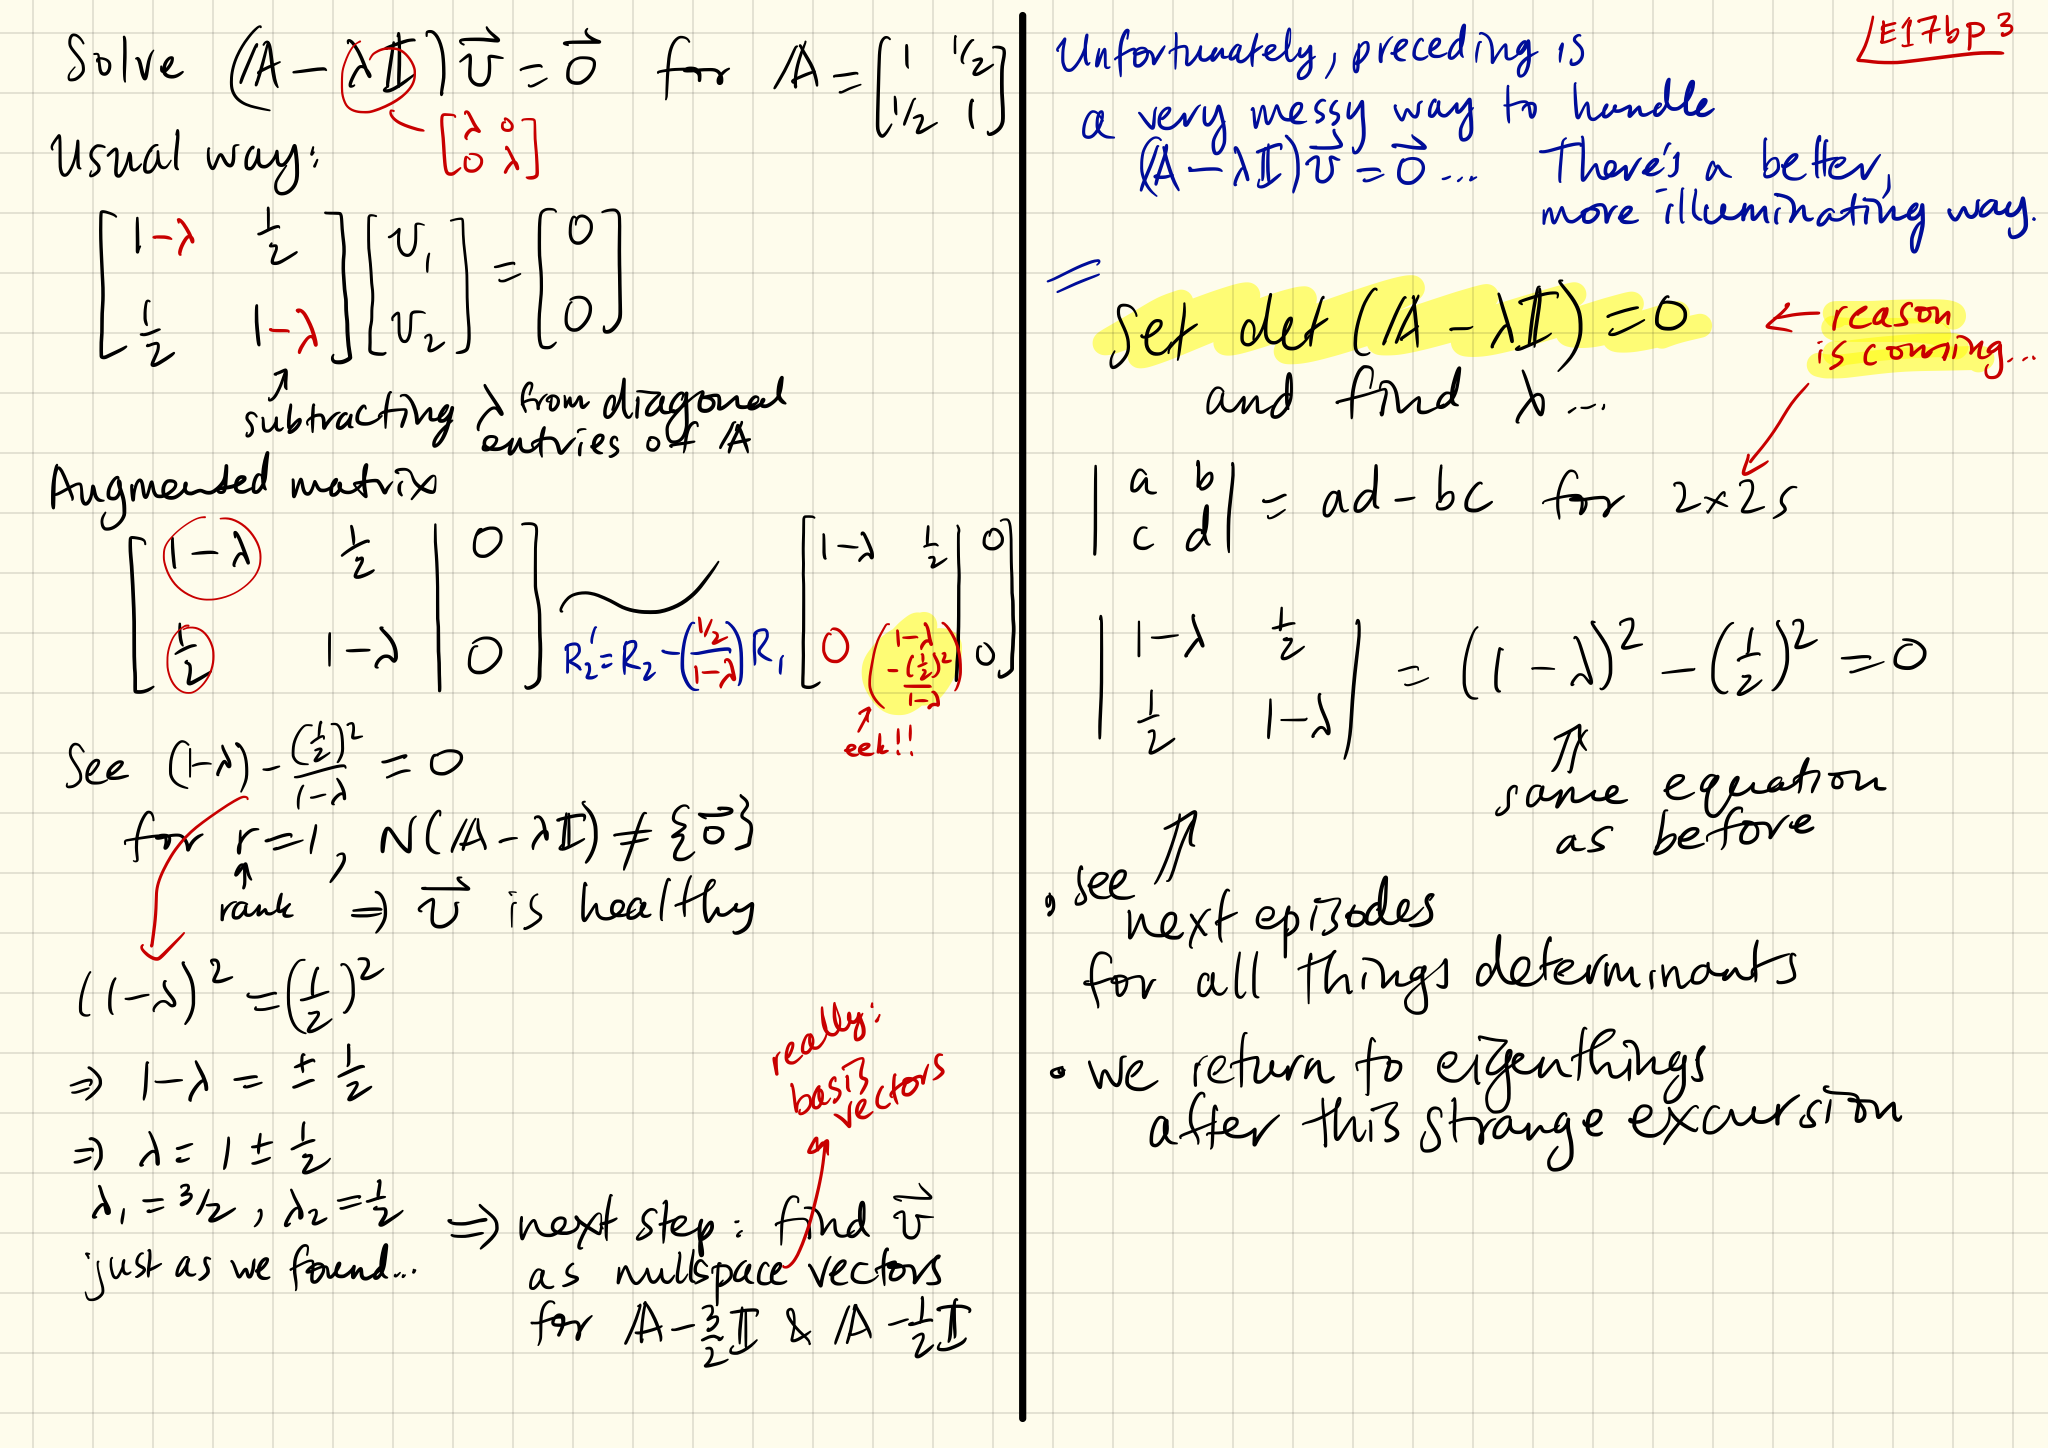 Solve (A - λI) v⃗ = 0⃗ for A = [1 1/2; 1/2 1]
[λ 0; 0 λ]
Usual way:
[1-λ 1/2; 1/2 1-λ] [v₁; v₂] = [0; 0]
subtracting λ from diagonal
entries of A
Augmented matrix
[1-λ 1/2 | 0; 1/2 1-λ | 0] R₂' = R₂ - ((1/2)/(1-λ)) R₁ [1-λ 1/2 | 0; 0 (1-λ - (1/2)²/(1-λ)) | 0]
eek!!
See (1-λ) - (1/2)²/(1-λ) = 0
for r = 1, N(A - λI) ≠ {0⃗}
rank ⇒ v⃗ is healthy
(1-λ)² = (1/2)²
⇒ 1-λ = ± 1/2
⇒ λ = 1 ± 1/2
λ₁ = 3/2, λ₂ = 1/2
just as we found...
⇒ next step: find v⃗
as nullspace vectors
for A - 3/2 I & A - 1/2 I
really:
basis
vectors
E17bp3
Unfortunately, preceding is
a very messy way to handle
(A - λI) v⃗ = 0⃗ ... There's a better,
more illuminating way.
Set det (A - λI) = 0
← reason
is coming...
and find λ...
|a b; c d| = ad - bc for 2×2s
|1-λ 1/2; 1/2 1-λ| = (1-λ)² - (1/2)² = 0
same equation
as before
• see
next episodes
for all things determinants
• we return to eigenthings
after this strange excursion